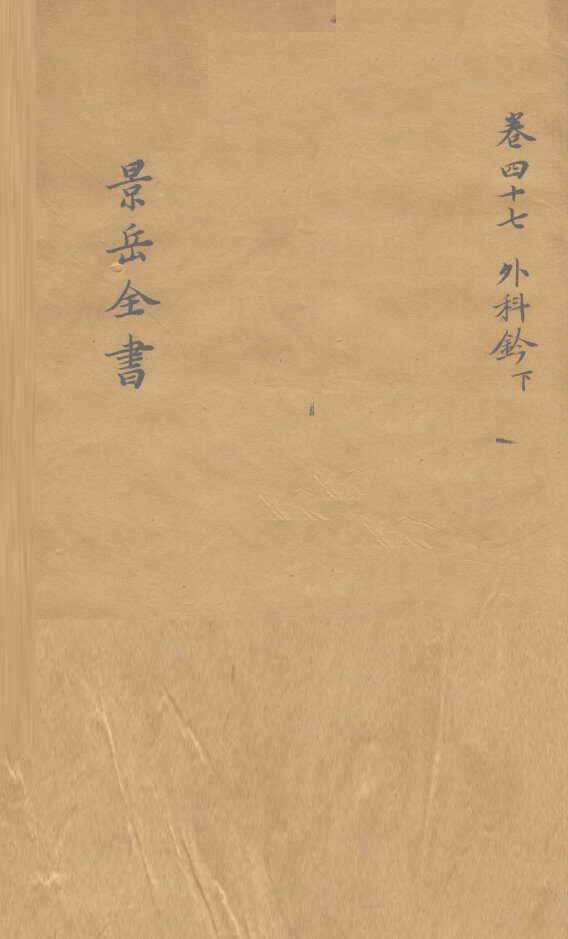 卷四十七 外科鈐下
景岳全書